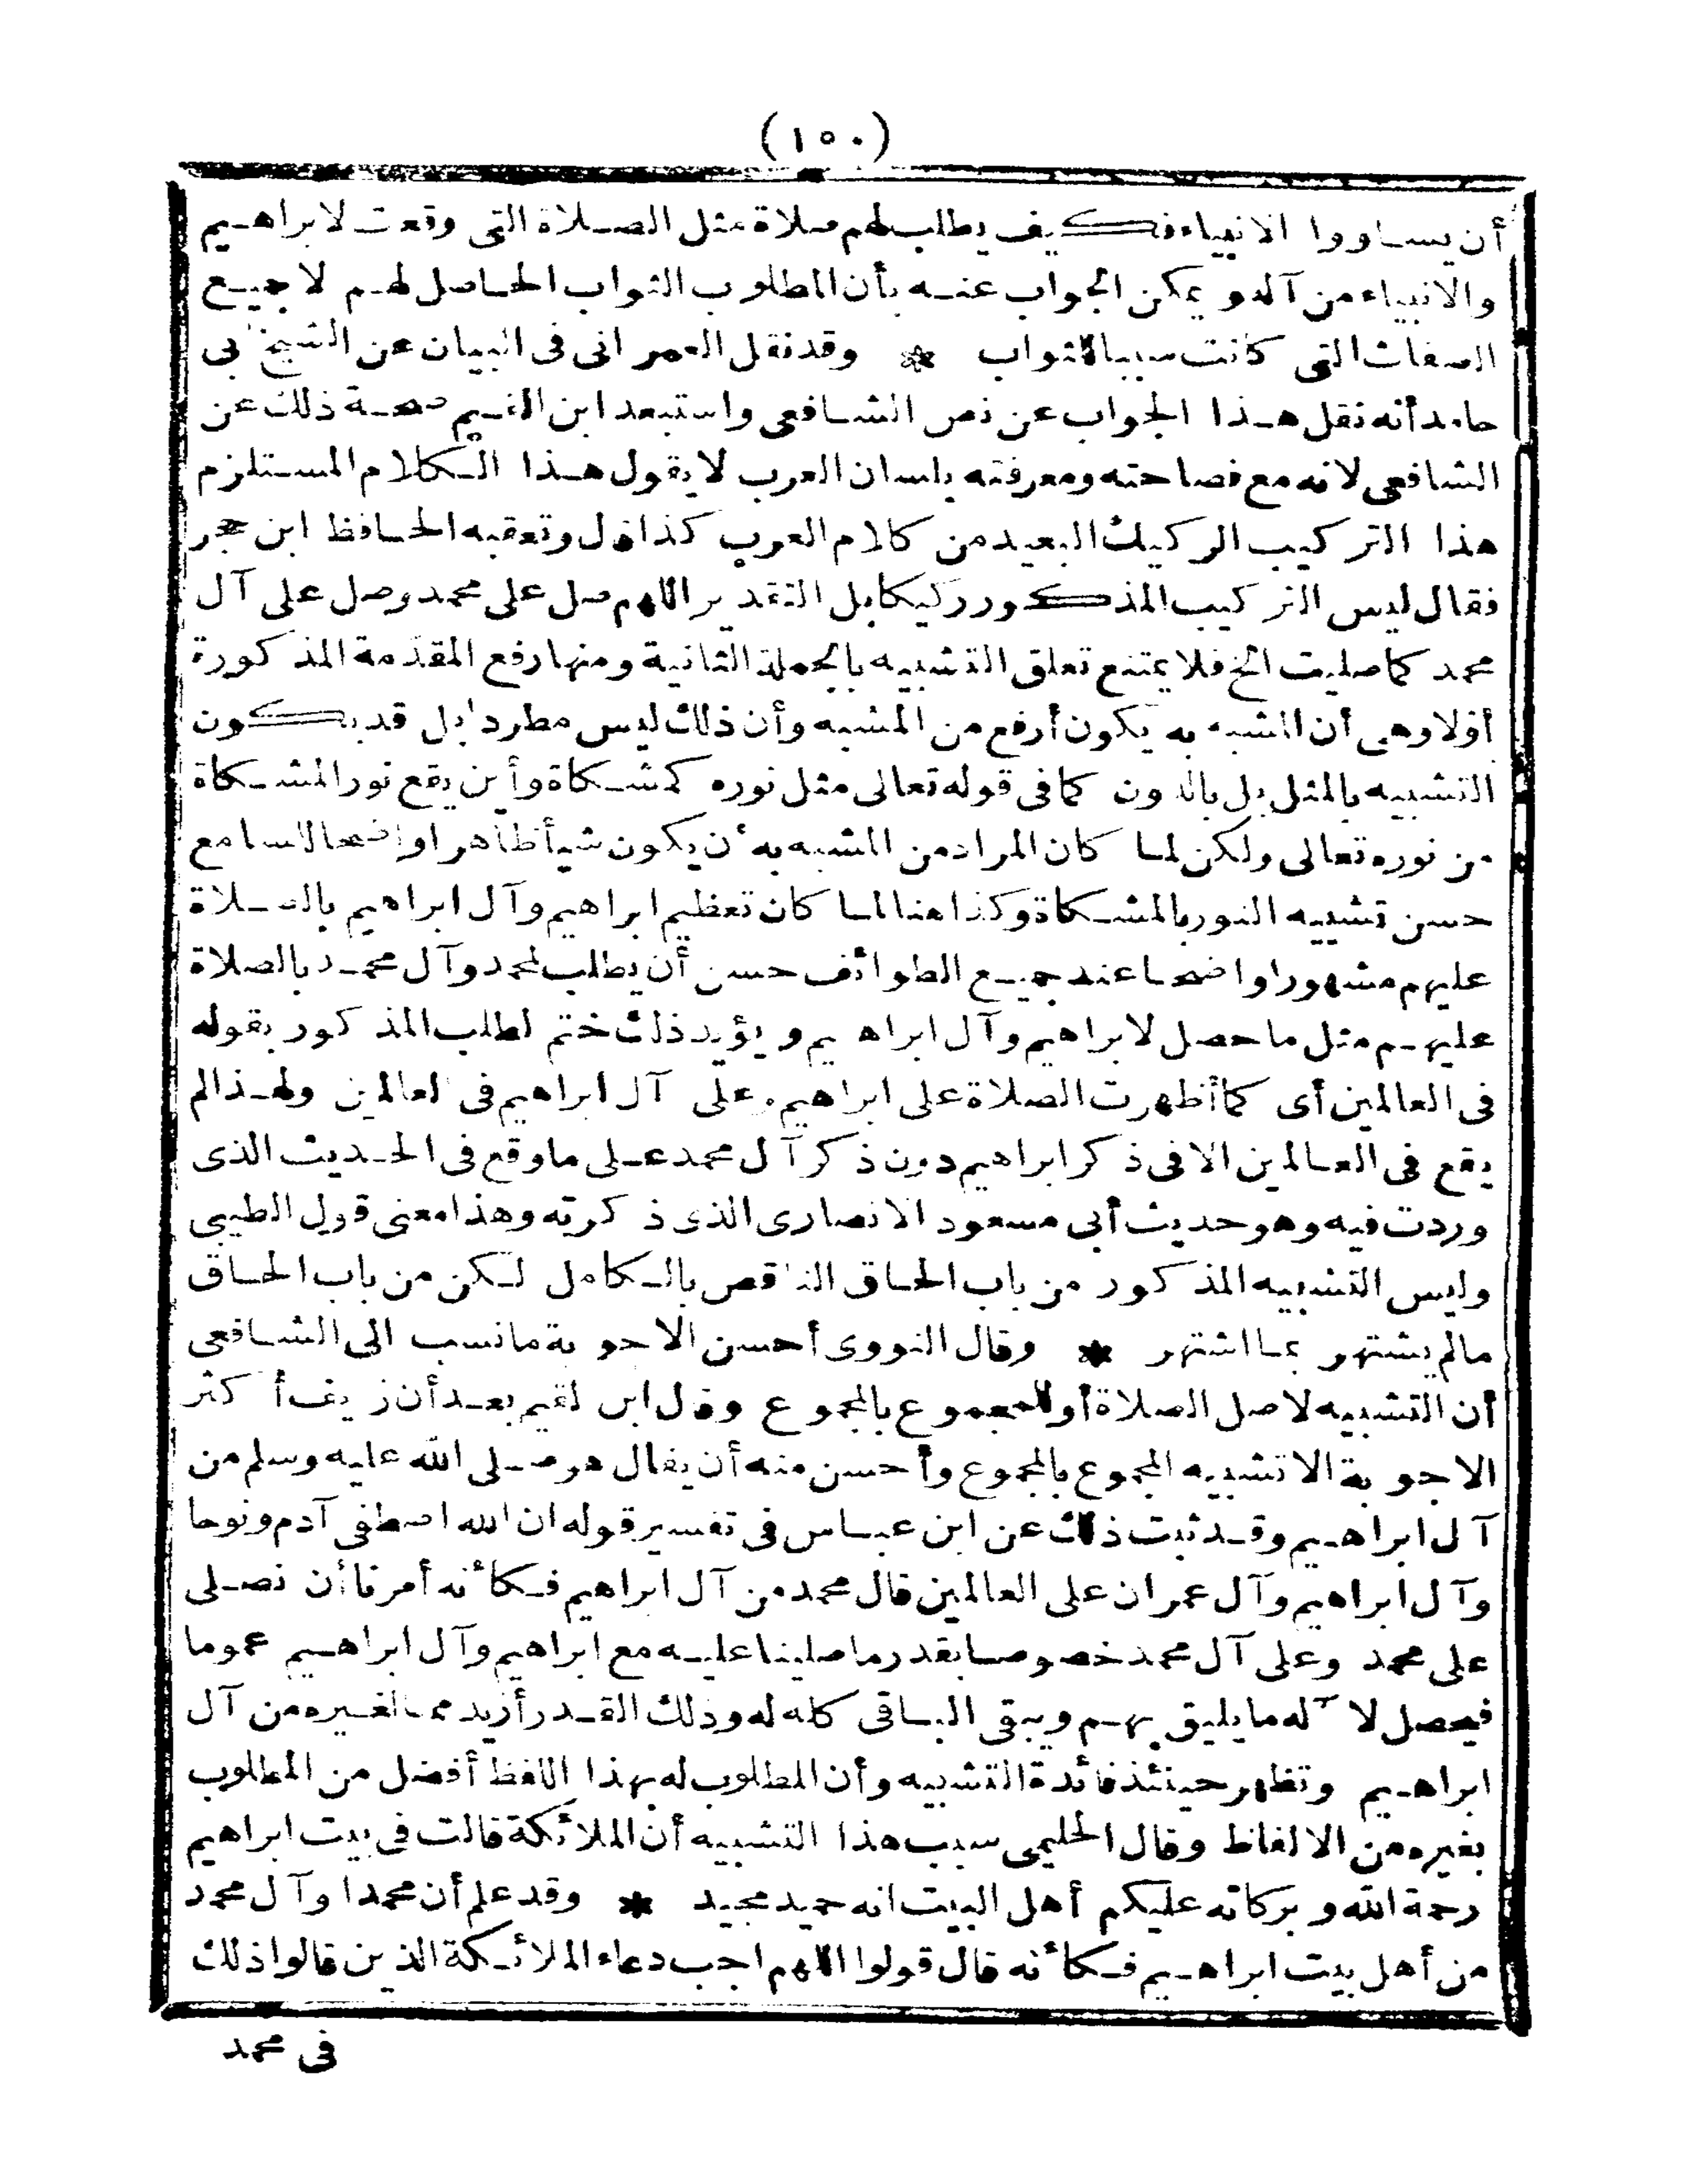 (١٥٠)
أن يساووا الانبياء فكيف يطلب لهم صلاة مثل الصلاة التى وقعت لابراهيم
والانبياء من آله و يمكن الجواب عنه بأن المطلوب الثواب الحاصل لهم لا جميع
الصفات التى كانت سببا للثواب * وقد نقل العمرانى فى البيان عن الشيخ أبى
حامد أنه نقل هذا الجواب عن نص الشافعى واستبعد ابن القيم صحة ذلك عن
الشافعى لانه مع فصاحته ومعرفته بلسان العرب لا يقول هذا الكلام المستلزم
هذا التركيب الركيك البعيد من كلام العرب كذا قال وتعقبه الحافظ ابن حجر
فقال ليس التركيب المذكور ركيكا بل التقدير اللهم صل على محمد وصل على آل
محمد كما صليت الخ فلا يمتنع تعلق التشبيه بالجملة الثانية ومنها رفع المقدّمة المذكورة
أوّلا وهى أن المشبه به يكون أرفع من المشبه وأن ذلك ليس مطردا بل قد يكون
التشبيه بالمثل بل بالدون كما فى قوله تعالى مثل نوره كمشكاة وأين يقع نور المشكاة
من نوره تعالى ولكن لما كان المراد من المشبه به أن يكون شيأ ظاهرا واضحا للسامع
حسن تشبيه النور بالمشكاة وكذا هنا لما كان تعظيم ابراهيم وآل ابراهيم بالصلاة
عليهم مشهورا واضحا عند جميع الطوائف حسن أن يطلب لمحمد وآل محمد بالصلاة
عليهم مثل ما حصل لابراهيم وآل ابراهيم و يؤيد ذلك ختم الطلب المذكور بقوله
فى العالمين أى كما أظهرت الصلاة على ابراهيم وعلى آل ابراهيم فى العالمين ولهذا لم
يقع فى العالمين الا فى ذكر ابراهيم دون ذكر آل محمد على ما وقع فى الحديث الذى
وردت فيه وهو حديث أبى مسعود الانصارى الذى ذكرته وهذا معنى قول الطيبى
وليس التشبيه المذكور من باب الحاق الناقص بالكامل لكن من باب الحاق
مالم يشتهر بما اشتهر * وقال النووى أحسن الاجوبة ما نسب الى الشافعى
أن التشبيه لاصل الصلاة أو للمجموع بالمجموع وقال ابن القيم بعد أن زيف أكثر
الاجوبة الا تشبيه المجموع بالمجموع وأحسن منه أن يقال هو صلى الله عليه وسلم من
آل ابراهيم وقد ثبت ذلك عن ابن عباس فى تفسير قوله ان الله اصطفى آدم ونوحا
وآل ابراهيم وآل عمران على العالمين قال محمد من آل ابراهيم فكأنه أمرنا أن نصلى
على محمد وعلى آل محمد خصوصا بقدر ما صلينا عليه مع ابراهيم وآل ابراهيم عموما
فيحصل لآله ما يليق بهم ويبقى الباقى كله له وذلك القدر أزيد مما لغيره من آل
ابراهيم وتظهر حينئذ فائدة التشبيه وأن المطلوب له بهذا اللفظ أفضل من المطلوب
بغيره من الالفاظ وقال الحليمى سبب هذا التشبيه أن الملائكة قالت فى بيت ابراهيم
رحمة الله و بركاته عليكم أهل البيت انه حميد مجيد * وقد علم أن محمدا وآل محمد
من أهل بيت ابراهيم فكأنه قال قولوا اللهم اجب دعاء الملائكة الذين قالوا ذلك
فى محمد